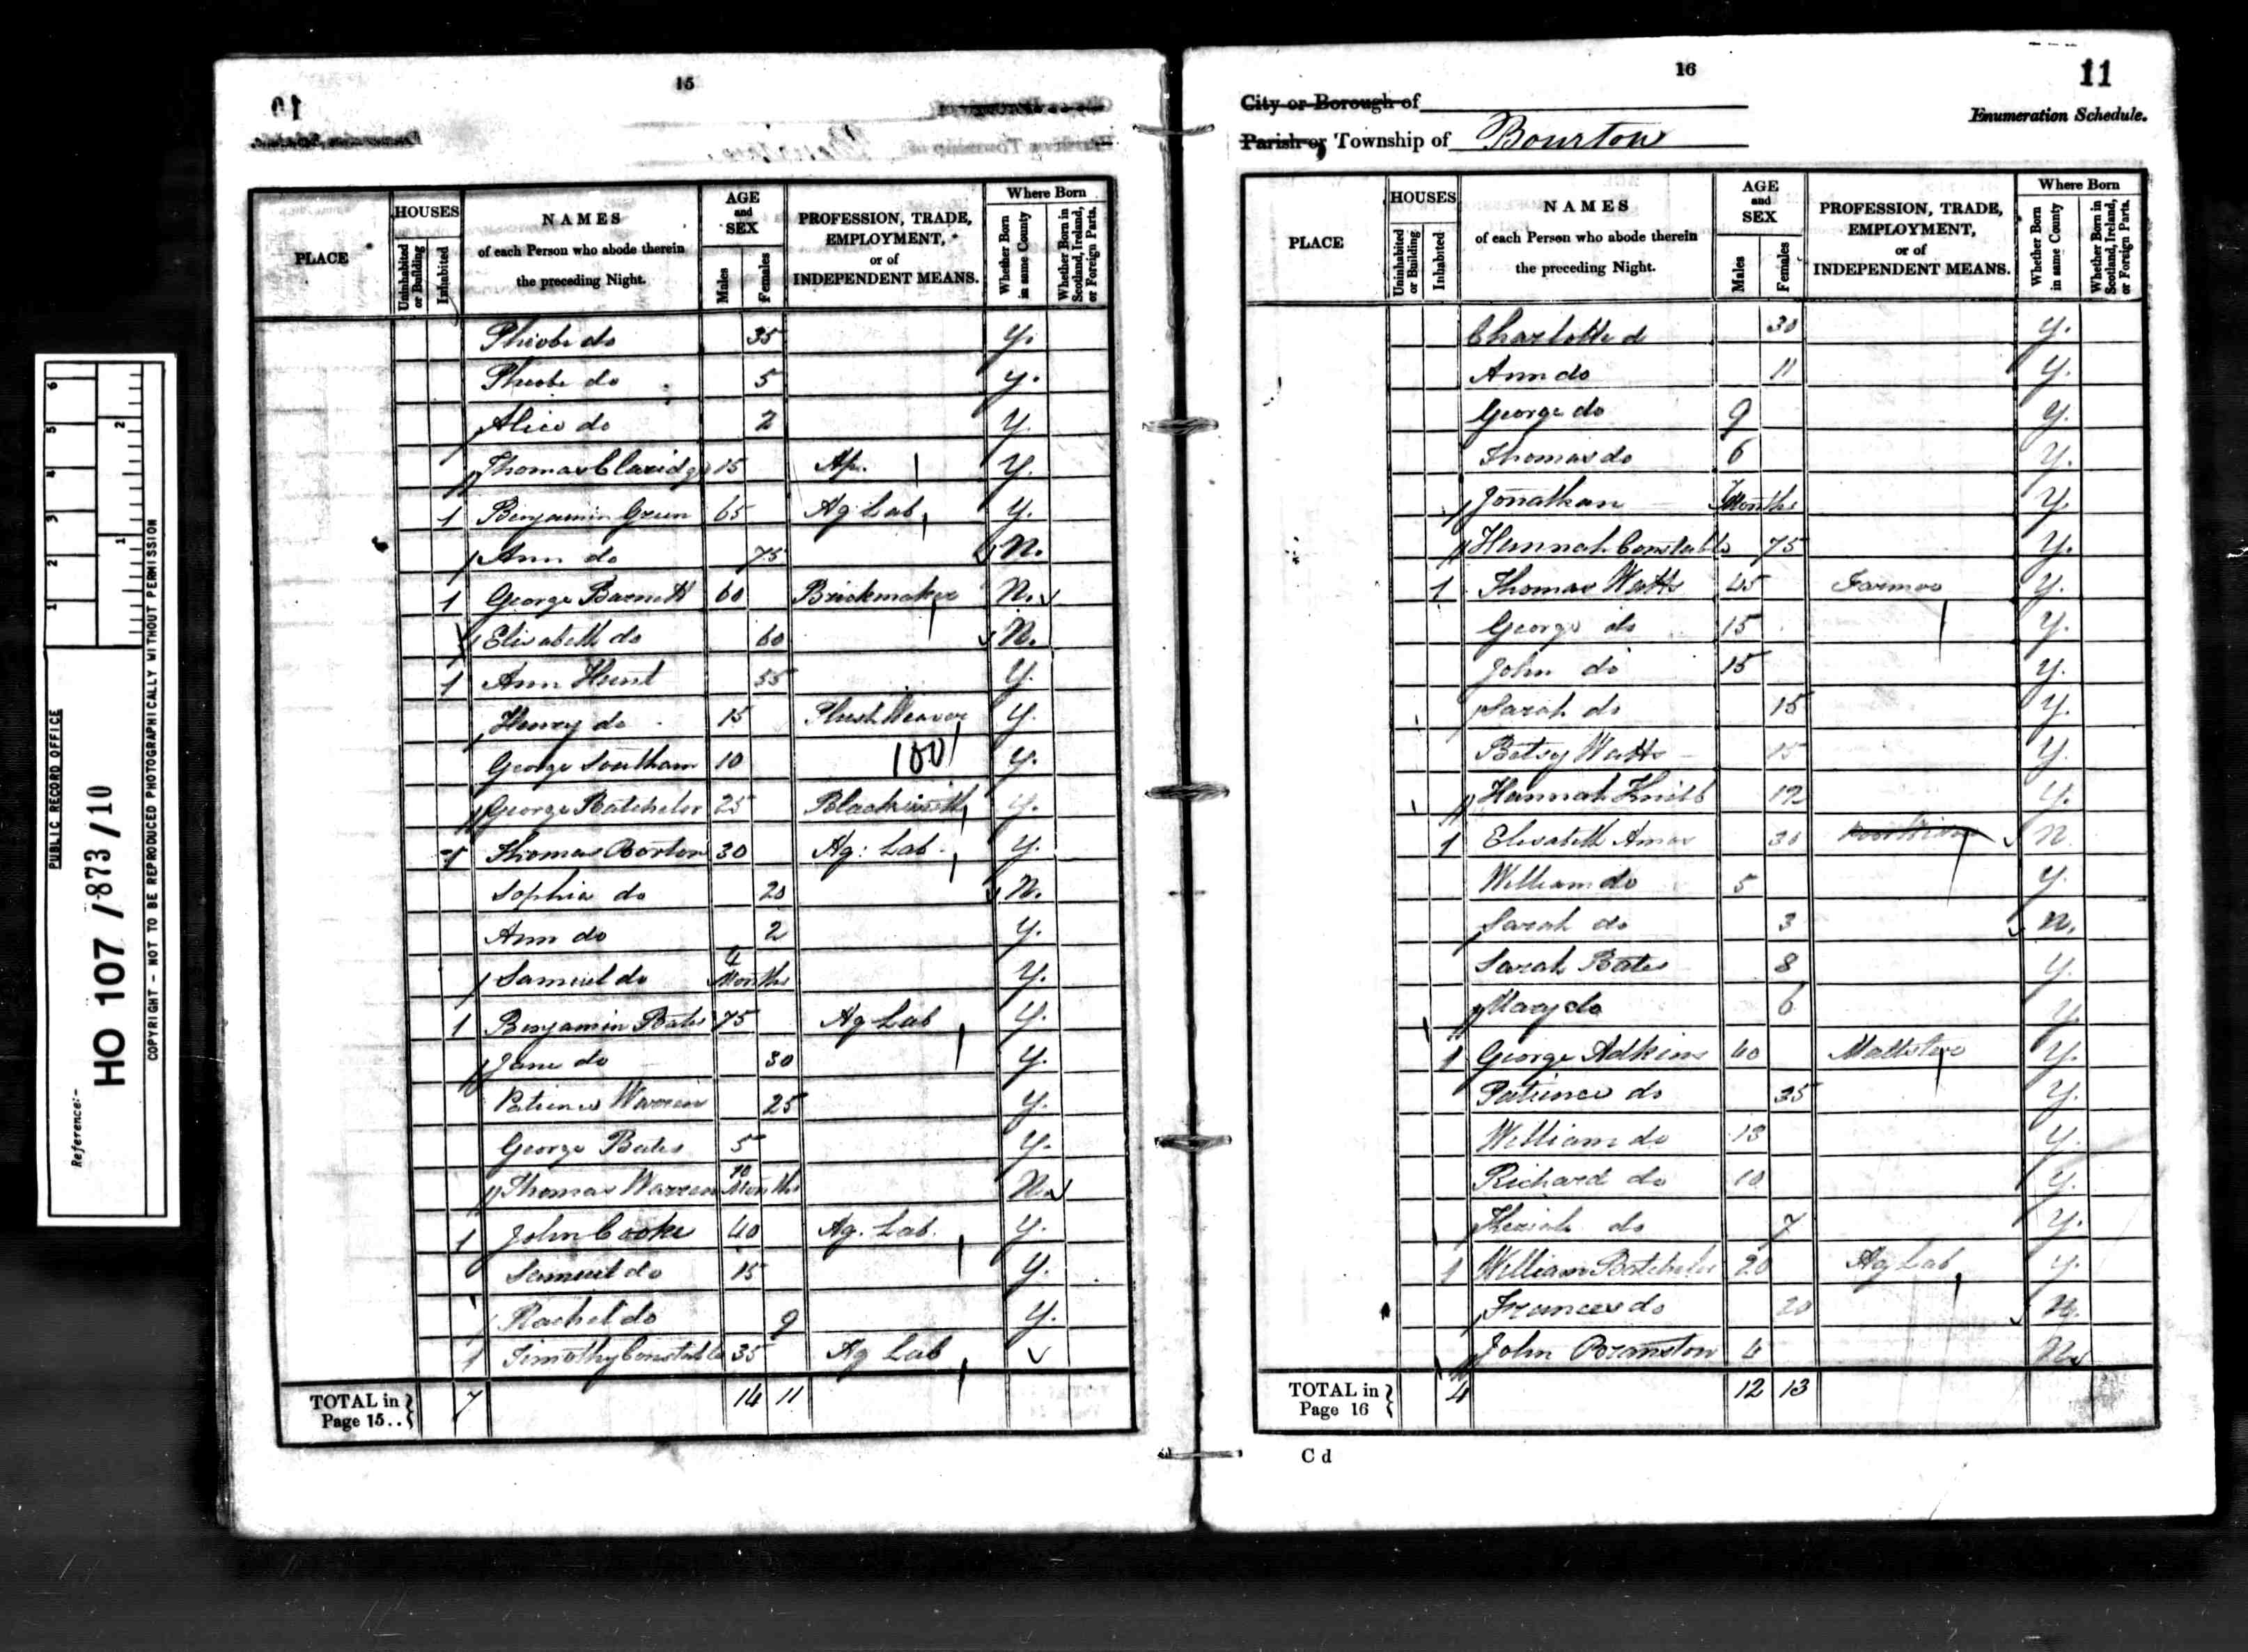 15
PLACE
HOUSES
Uninhabited or Building
Inhabited
NAMES
of each Person who abode therein
the preceding Night.
AGE and SEX
Males
Females
PROFESSION, TRADE, EMPLOYMENT, or of INDEPENDENT MEANS.
Where Born
Whether Born in same County
Whether Born in Scotland, Ireland, or Foreign Parts.
Pheobe do 35 Y.
Pheobe do 5 Y.
Alice do 2 Y.
Thomas Claridge 15 Ap. Y.
1 Benjamin Green 65 Ag Lab Y.
Ann do 75 N.
1 George Barnett 60 Brickmaker N.
Elisabeth do 60 N.
1 Ann Hunt 55 Y.
Henry do 15 Plush Weaver Y.
George Southam 10 100 Y.
George Batchelor 25 Blacksmith Y.
1 Thomas Borton 30 Ag: Lab. Y.
Sophia do 20 N.
Ann do 2 Y.
Samuel do 4 Months Y.
1 Benjamin Bates 75 Ag Lab Y.
Jane do 30 Y.
Patience Warren 25 Y.
George Bates 5 Y.
Thomas Warren 10 Months N.
1 John Cooke 40 Ag. Lab. Y.
Samuel do 15 Y.
Rachel do 9 Y.
1 Timothy Constable 35 Ag Lab
TOTAL in Page 15.. 7 14 11
16
11
City or Borough of
Enumeration Schedule.
Parish or Township of Bourton
PLACE
HOUSES
Uninhabited or Building
Inhabited
NAMES
of each Person who abode therein
the preceding Night.
AGE and SEX
Males
Females
PROFESSION, TRADE, EMPLOYMENT, or of INDEPENDENT MEANS.
Where Born
Whether Born in same County
Whether Born in Scotland, Ireland, or Foreign Parts.
Charlotte d 30 Y.
Ann do 11 Y.
George do 9 Y.
Thomas do 6 Y.
Jonathan 7 Months Y.
Hannah Constable 75 Y.
1 Thomas Watts 45 Farmer Y.
George do 15 Y.
John do 15 Y.
Sarah do 15 Y.
Betsy Watts 15 Y.
Hannah Knibb 12 Y.
1 Elisabeth Amos 30 N
William do 5 Y.
Sarah do 3 N.
Sarah Bates 8 Y
Mary do 6 Y
1 George Adkins 40 Maltster Y.
Patience do 35 Y.
William do 13 Y.
Richard do 10 Y.
Keziah do 7 Y.
1 William Batchelor 20 Ag Lab Y.
Frances do 20 N.
John Branston 4 N
TOTAL in Page 16 4 12 13
C d
PUBLIC RECORD OFFICE
Reference:-
HO 107 / 873 / 10
COPYRIGHT - NOT TO BE REPRODUCED PHOTOGRAPHICALLY WITHOUT PERMISSION
1 2 3 4 5 6
1 2